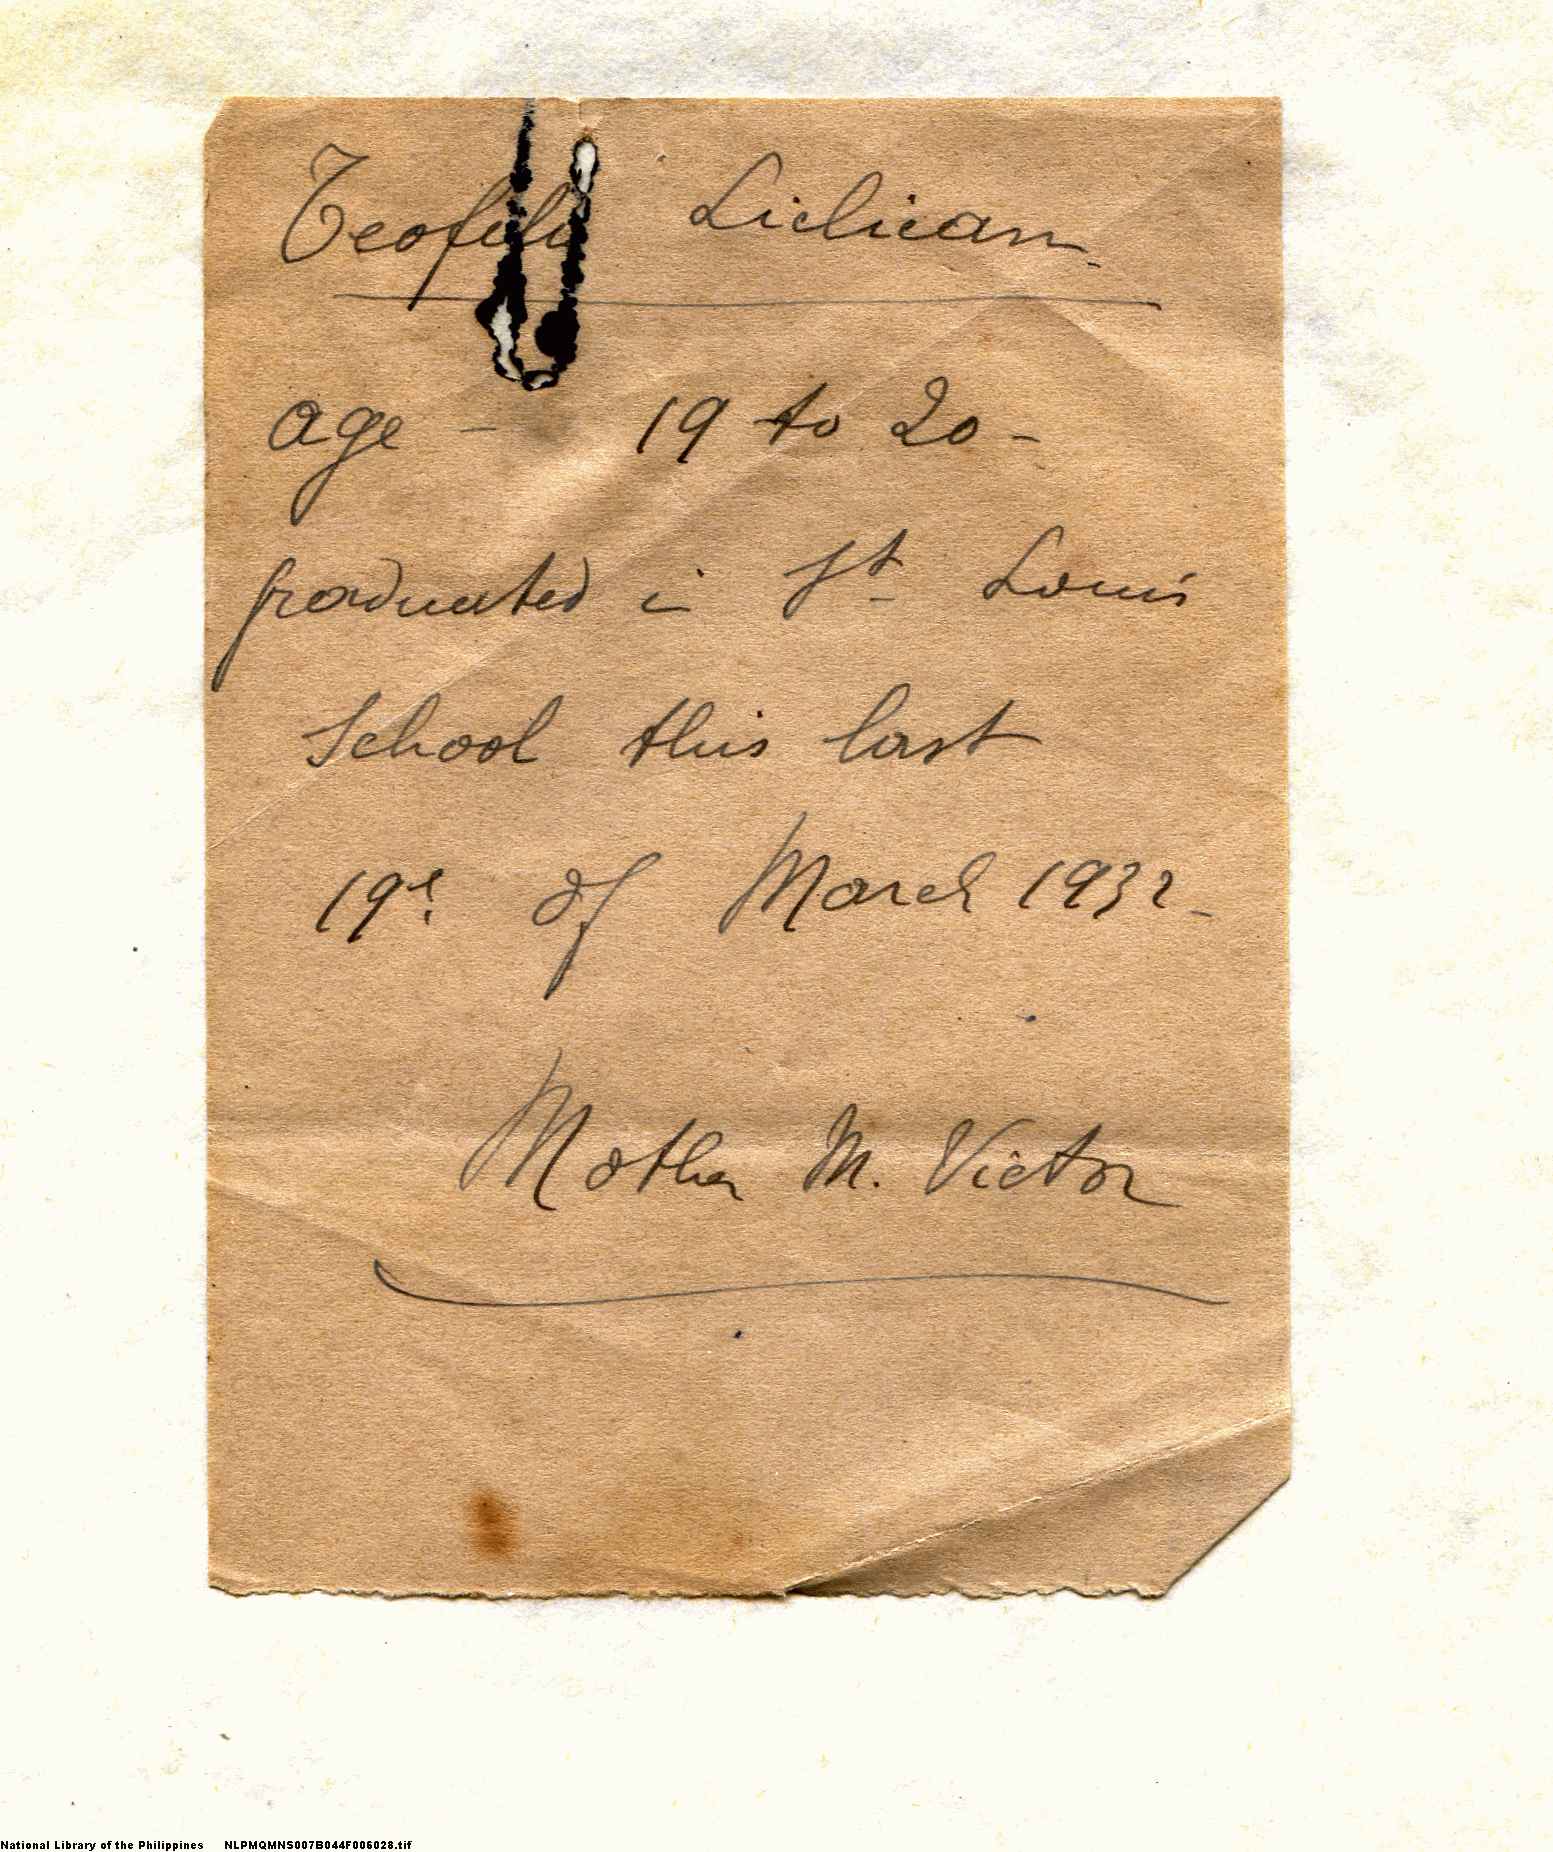 Teofilo Liclican.
age - 19 to 20 -
graduated in St. Louis
School this last
19 of March 1932 -
Mother M. Victor
National Library of the Philippines NLPMQMNS007B044F006028.tif